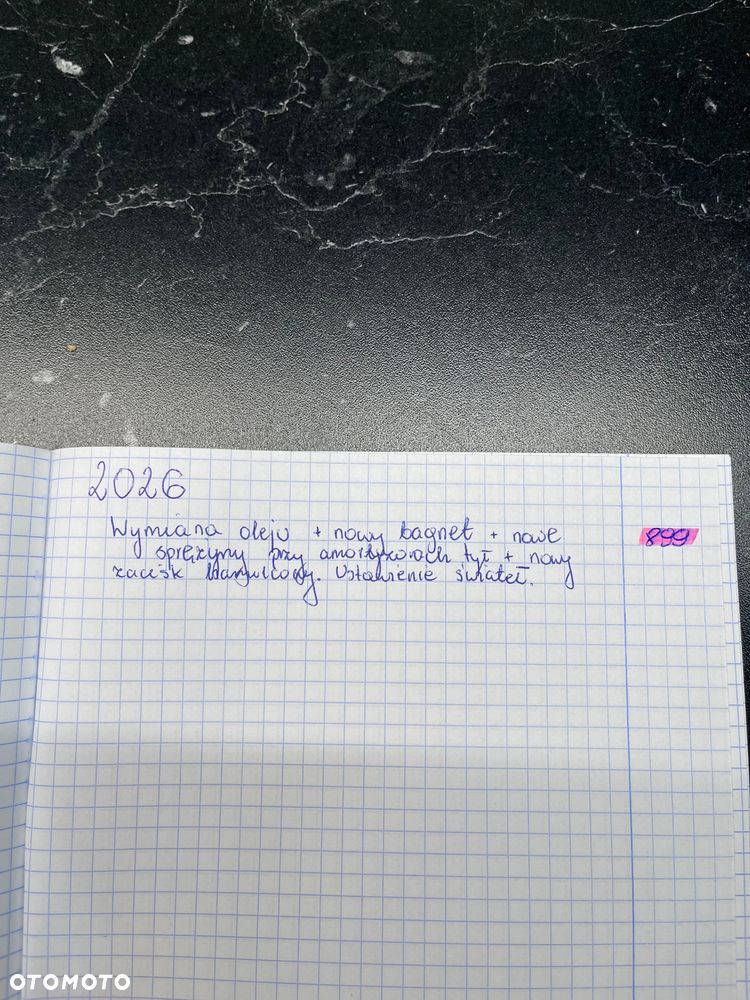 2026
Wymiana oleju + nowy bagnet + nowe 899
sprężyny przy amortyzorach tył + nowy
zacisk hamulcowy. Ustawienie świateł.
OTOMOTO